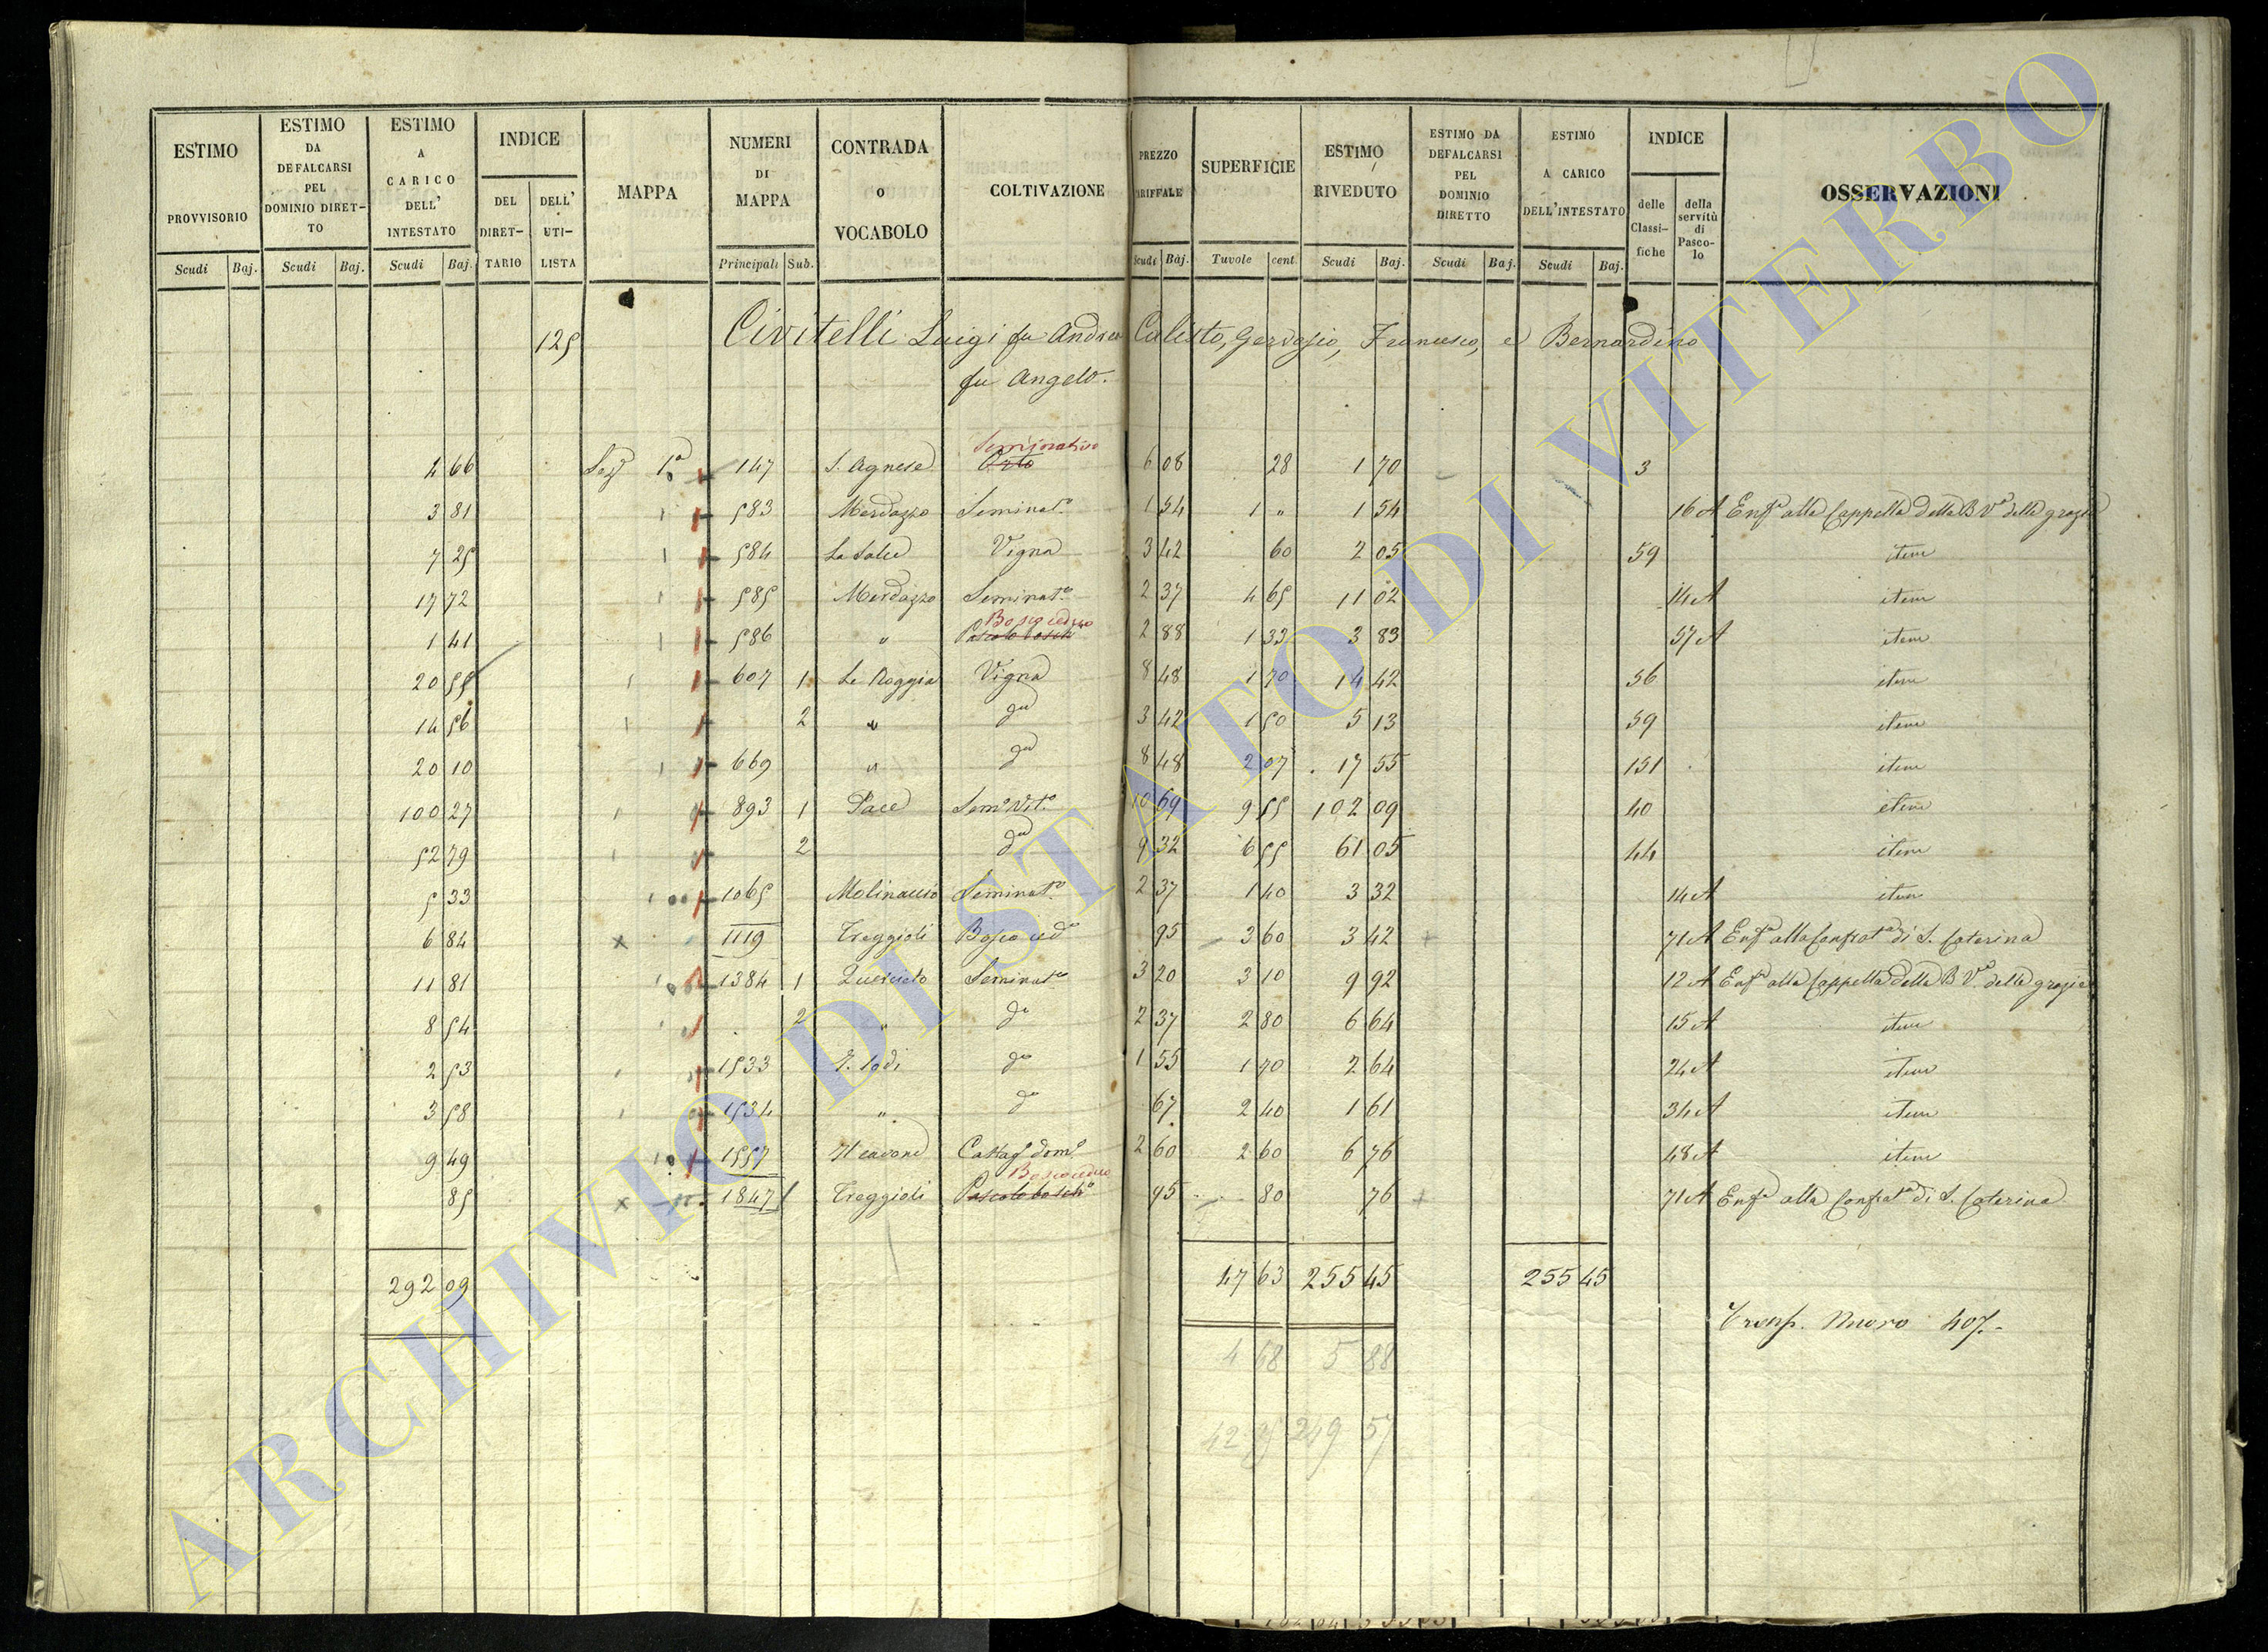 ESTIMO PROVVISORIO Scudi Baj. ESTIMO DA DEFALCARSI PEL DOMINIO DIRET-TO Scudi Baj. ESTIMO A CARICO DELL' INTESTATO Scudi Baj. INDICE DEL DIRET-TARIO DELL' UTI-LISTA MAPPA NUMERI DI MAPPA Principali Sub. CONTRADA o VOCABOLO COLTIVAZIONE PREZZO TARIFFALE Scudi Baj. SUPERFICIE Tavole cent ESTIMO RIVEDUTO Scudi Baj. ESTIMO DA DEFALCARSI PEL DOMINIO DIRETTO Scudi Baj. ESTIMO A CARICO DELL'INTESTATO Scudi Baj. INDICE delle Classi-fiche della servitù di Pasco-lo OSSERVAZIONI
125 Civitelli Luigi fu Andrea Calisto, Gervasio, Francesco, e Bernardino
fu Angelo.
Seminativo
4 66 Sez 1a 147 S. Agnese Orto 6 08 28 1 70 3
3 81 1 583 Merdazzo Seminat.o 1 54 1 " 1 54 16 A Enf.a alla Cappella della B V.e delle grazie
7 25 1 584 Vigna 3 42 60 2 05 59 item
17 72 1 585 Merdazzo Seminat.o 2 37 4 65 11 02 14 A item
Bosco ceduo
1 41 1 586 " Pascolo bosch 2 88 1 33 3 83 57 A item
20 55 1 607 1 La Roggia Vigna 8 48 1 70 14 42 56 item
14 56 1 2 " da 3 42 1 50 5 13 59 item
20 10 1 669 " da 8 48 2 07 17 55 151 item
100 27 1 893 1 Pace Sem.o Vit.o 10 69 9 55 102 09 40 item
52 79 1 2 da 9 32 6 55 61 05 44 item
5 33 1 1065 Molinaccio Seminat.o 2 37 1 40 3 32 14 A item
6 84 x 1119 Treggioli Bosco ced.o 95 3 60 3 42 71 A Enf.a alla Confrat.a di S. Caterina
11 81 1 1384 1 Querceto Seminat.o 3 20 3 10 9 92 12 A Enf.a alla Cappella della B V.e delle grazie
8 54 1 2 " do 2 37 2 80 6 64 15 A item
2 53 1533 do 1 55 1 70 2 64 24 A item
3 58 1534 " do 67 2 40 1 61 34 A item
9 49 1 1557 Castag.o dom.o 2 60 2 60 6 76 48 A item
Bosco ceduo
85 x 1847 Treggioli Pascolo bosch.o 95 80 76 71 A Enf.a alla Confrat.a di S. Caterina
292 09 47 63 255 45 255 45
Trasp. Nuovo 407.-
4 68 5 88
42 95 249 57
ARCHIVIO DI STATO DI VITERBO